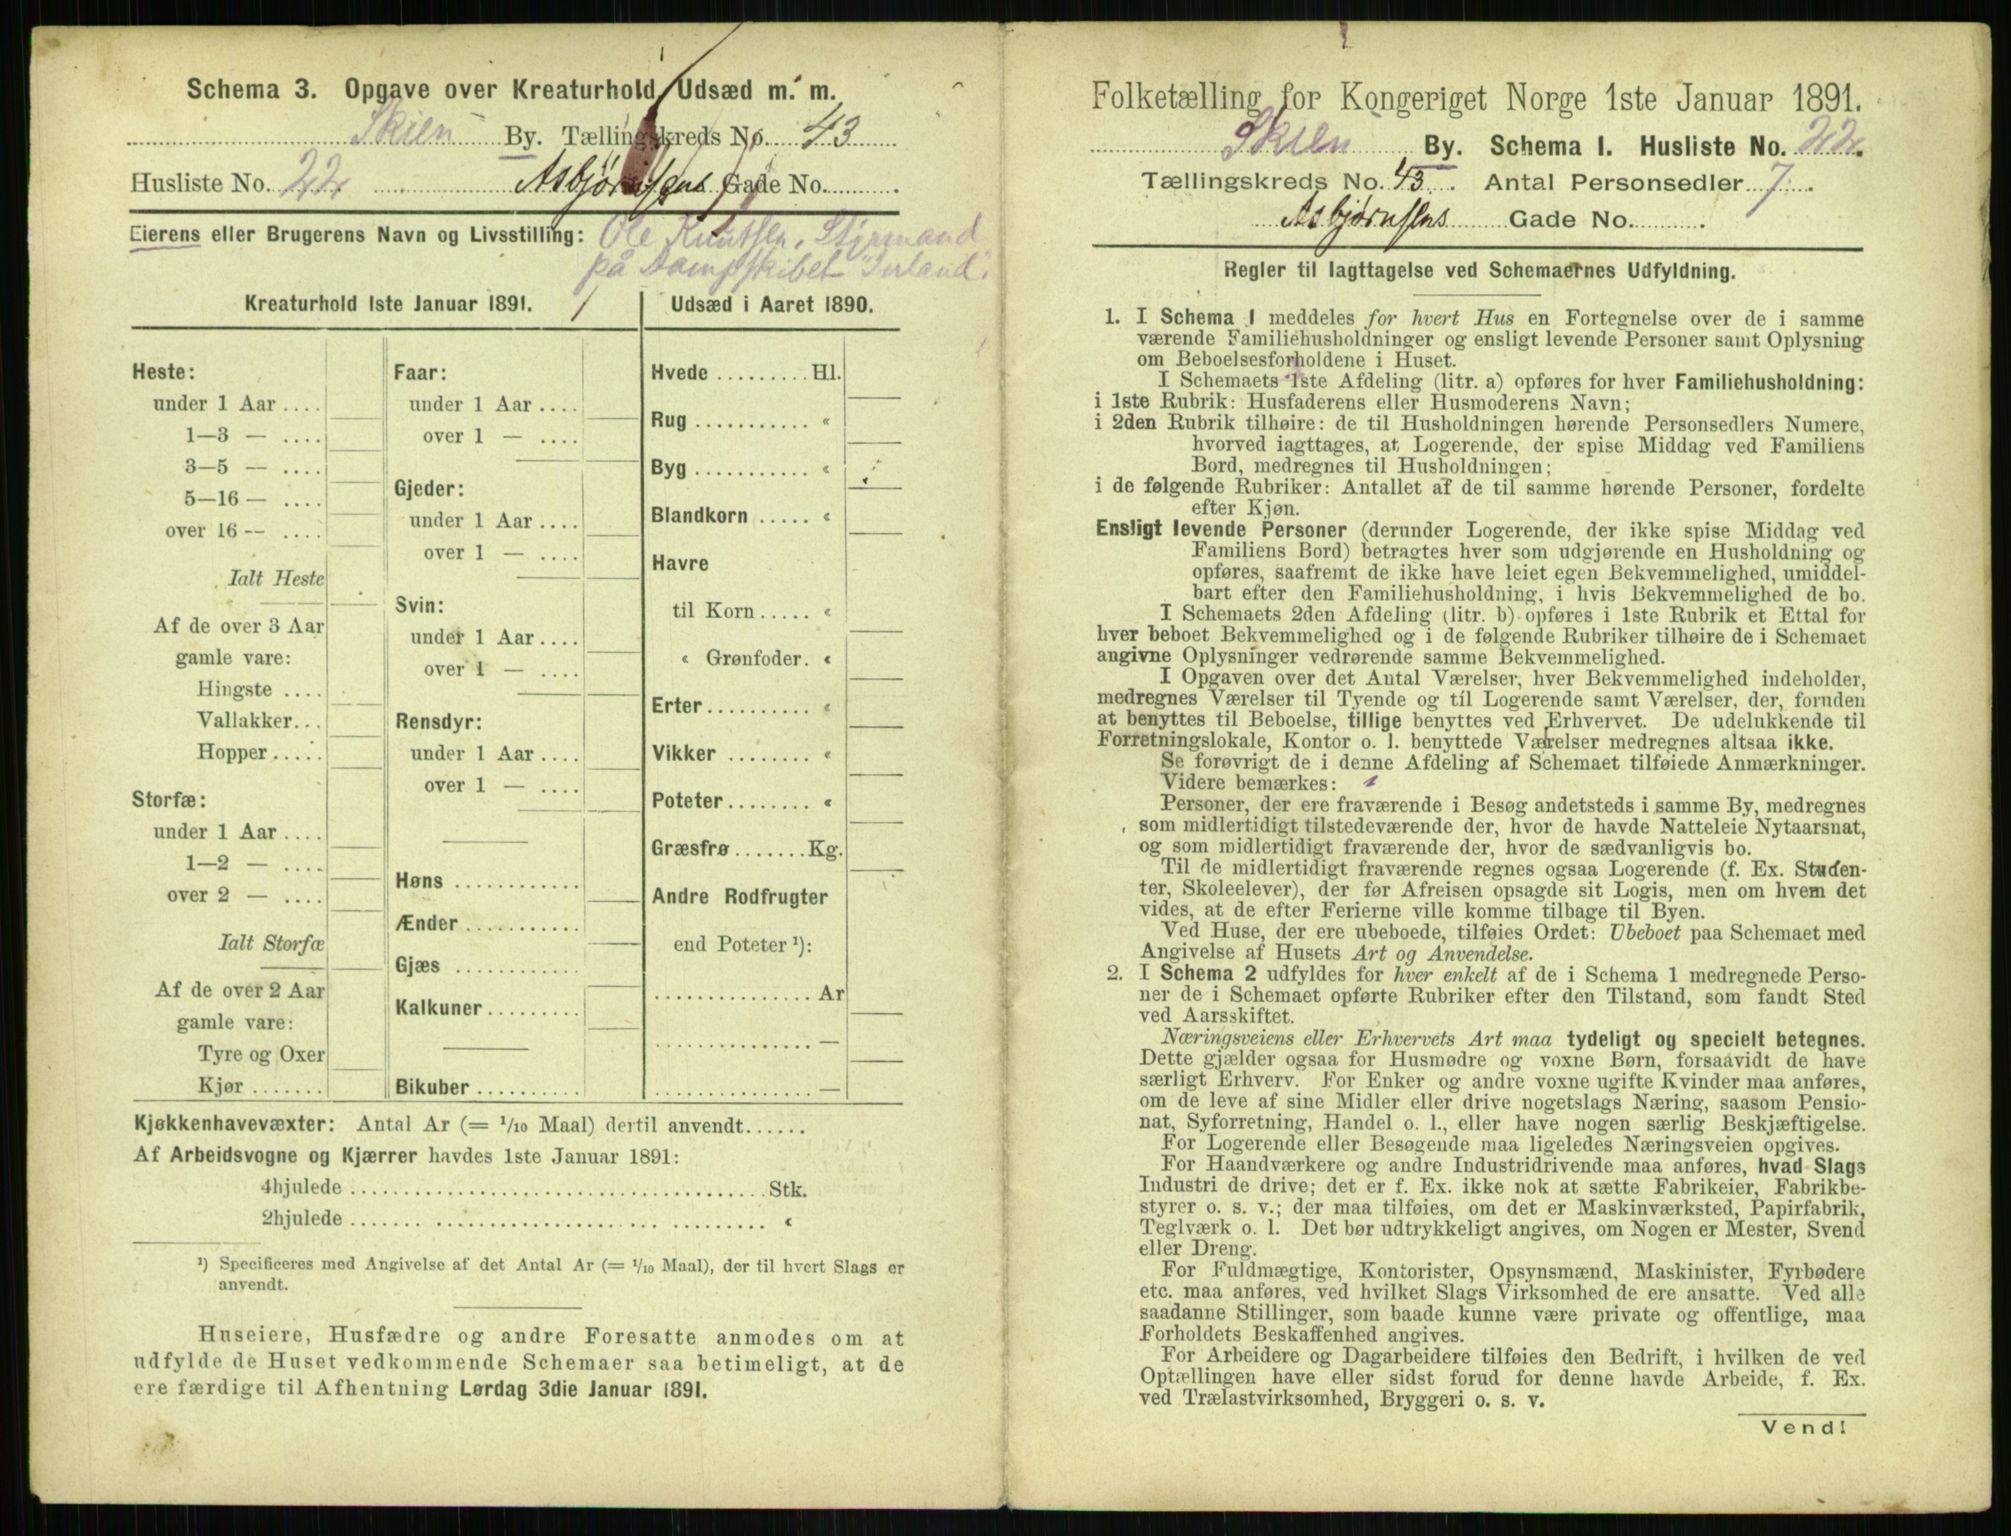 Schema 3. Opgave over Kreaturhold, Udsæd m. m.
Skien By. Tællingskreds No. 43
Husliste No. 22 Asbjørnsens Gade No.
Eierens eller Brugerens Navn og Livsstilling: Ole Knutsen, Styrmand
på Dampskibet "Irland".
Kreaturhold 1ste Januar 1891.
Heste:
under 1 Aar....
1—3 — ....
3—5 — ....
5—16 — ....
over 16 — ....
Ialt Heste
Af de over 3 Aar
gamle vare:
Hingste ....
Vallakker...
Hopper.....
Storfæ:
under 1 Aar....
1—2 — ....
over 2 — ....
Ialt Storfæ
Af de over 2 Aar
gamle vare:
Tyre og Oxer
Kjør.......
Faar:
under 1 Aar ....
over 1 — ....
Gjeder:
under 1 Aar ....
over 1 — ....
Svin:
under 1 Aar ....
over 1 — ....
Rensdyr:
under 1 Aar ....
over 1 — ....
Høns ...........
Ænder ..........
Gjæs ...........
Kalkuner ........
Bikuber .........
Udsæd i Aaret 1890.
Hvede ......... Hl.
Rug ........... «
Byg ........... «
Blandkorn ..... «
Havre
til Korn..... «
« Grønfoder. «
Erter.......... «
Vikker ........ «
Poteter........ «
Græsfrø.......Kg.
Andre Rodfrugter
end Poteter ¹):
............... Ar
............... —
............... —
Kjøkkenhavevæxter: Antal Ar (= 1/10 Maal) dertil anvendt......
Af Arbeidsvogne og Kjærrer havdes 1ste Januar 1891:
4hjulede ........................................Stk.
2hjulede ........................................ «
¹) Specificeres med Angivelse af det Antal Ar (= 1/10 Maal), der til hvert Slags er
anvendt.
Huseiere, Husfædre og andre Foresatte anmodes om at
udfylde de Huset vedkommende Schemaer saa betimeligt, at de
ere færdige til Afhentning Lørdag 3die Januar 1891.
Folketælling for Kongeriget Norge 1ste Januar 1891.
Skien By. Schema I. Husliste No. 22.
Tællingskreds No. 43. Antal Personsedler 7.
Asbjørnsens Gade No.
Regler til Iagttagelse ved Schemaernes Udfyldning.
1. I Schema I meddeles for hvert Hus en Fortegnelse over de i samme
værende Familiehusholdninger og ensligt levende Personer samt Oplysning
om Beboelsesforholdene i Huset.
I Schemaets 1ste Afdeling (litr. a) opføres for hver Familiehusholdning:
i 1ste Rubrik: Husfaderens eller Husmoderens Navn;
i 2den Rubrik tilhøire: de til Husholdningen hørende Personsedlers Numere,
hvorved iagttages, at Logerende, der spise Middag ved Familiens
Bord, medregnes til Husholdningen;
i de følgende Rubriker: Antallet af de til samme hørende Personer, fordelte
efter Kjøn.
Ensligt levende Personer (derunder Logerende, der ikke spise Middag ved
Familiens Bord) betragtes hver som udgjørende en Husholdning og
opføres, saafremt de ikke have leiet egen Bekvemmelighed, umiddel-
bart efter den Familiehusholdning, i hvis Bekvemmelighed de bo.
I Schemaets 2den Afdeling (litr. b) opføres i 1ste Rubrik et Ettal for
hver beboet Bekvemmelighed og i de følgende Rubriker tilhøire de i Schemaet
angivne Oplysninger vedrørende samme Bekvemmelighed.
I Opgaven over det Antal Værelser, hver Bekvemmelighed indeholder,
medregnes Værelser til Tyende og til Logerende samt Værelser, der, foruden
at benyttes til Beboelse, tillige benyttes ved Erhvervet. De udelukkende til
Forretningslokale, Kontor o. l. benyttede Værelser medregnes altsaa ikke.
Se forøvrigt de i denne Afdeling af Schemaet tilføiede Anmærkninger.
Videre bemærkes:
Personer, der ere fraværende i Besøg andetsteds i samme By, medregnes
som midlertidigt tilstedeværende der, hvor de havde Natteleie Nytaarsnat,
og som midlertidigt fraværende der, hvor de sædvanligvis bo.
Til de midlertidigt fraværende regnes ogsaa Logerende (f. Ex. Studen-
ter, Skoleelever), der før Afreisen opsagde sit Logis, men om hvem det
vides, at de efter Ferierne ville komme tilbage til Byen.
Ved Huse, der ere ubeboede, tilføies Ordet: Ubeboet paa Schemaet med
Angivelse af Husets Art og Anvendelse.
2. I Schema 2 udfyldes for hver enkelt af de i Schema 1 medregnede Perso-
ner de i Schemaet opførte Rubriker efter den Tilstand, som fandt Sted
ved Aarsskiftet.
Næringsveiens eller Erhvervets Art maa tydeligt og specielt betegnes.
Dette gjælder ogsaa for Husmødre og voxne Børn, forsaavidt de have
særligt Erhverv. For Enker og andre voxne ugifte Kvinder maa anføres,
om de leve af sine Midler eller drive nogetslags Næring, saasom Pensio-
nat, Syforretning, Handel o. l., eller have nogen særlig Beskjæftigelse.
For Logerende eller Besøgende maa ligeledes Næringsveien opgives.
For Haandværkere og andre Industridrivende maa anføres, hvad Slags
Industri de drive; det er f. Ex. ikke nok at sætte Fabrikeier, Fabrikbe-
styrer o. s. v.; der maa tilføies, om det er Maskinværksted, Papirfabrik,
Teglværk o. l. Det bør udtrykkeligt angives, om Nogen er Mester, Svend
eller Dreng.
For Fuldmægtige, Kontorister, Opsynsmænd, Maskinister, Fyrbødere
etc. maa anføres, ved hvilket Slags Virksomhed de ere ansatte. Ved alle
saadanne Stillinger, som baade kunne være private og offentlige, maa
Forholdets Beskaffenhed angives.
For Arbeidere og Dagarbeidere tilføies den Bedrift, i hvilken de ved
Optællingen have eller sidst forud for denne havde Arbeide, f. Ex.
ved Trælastvirksomhed, Bryggeri o. s. v.
Vend!